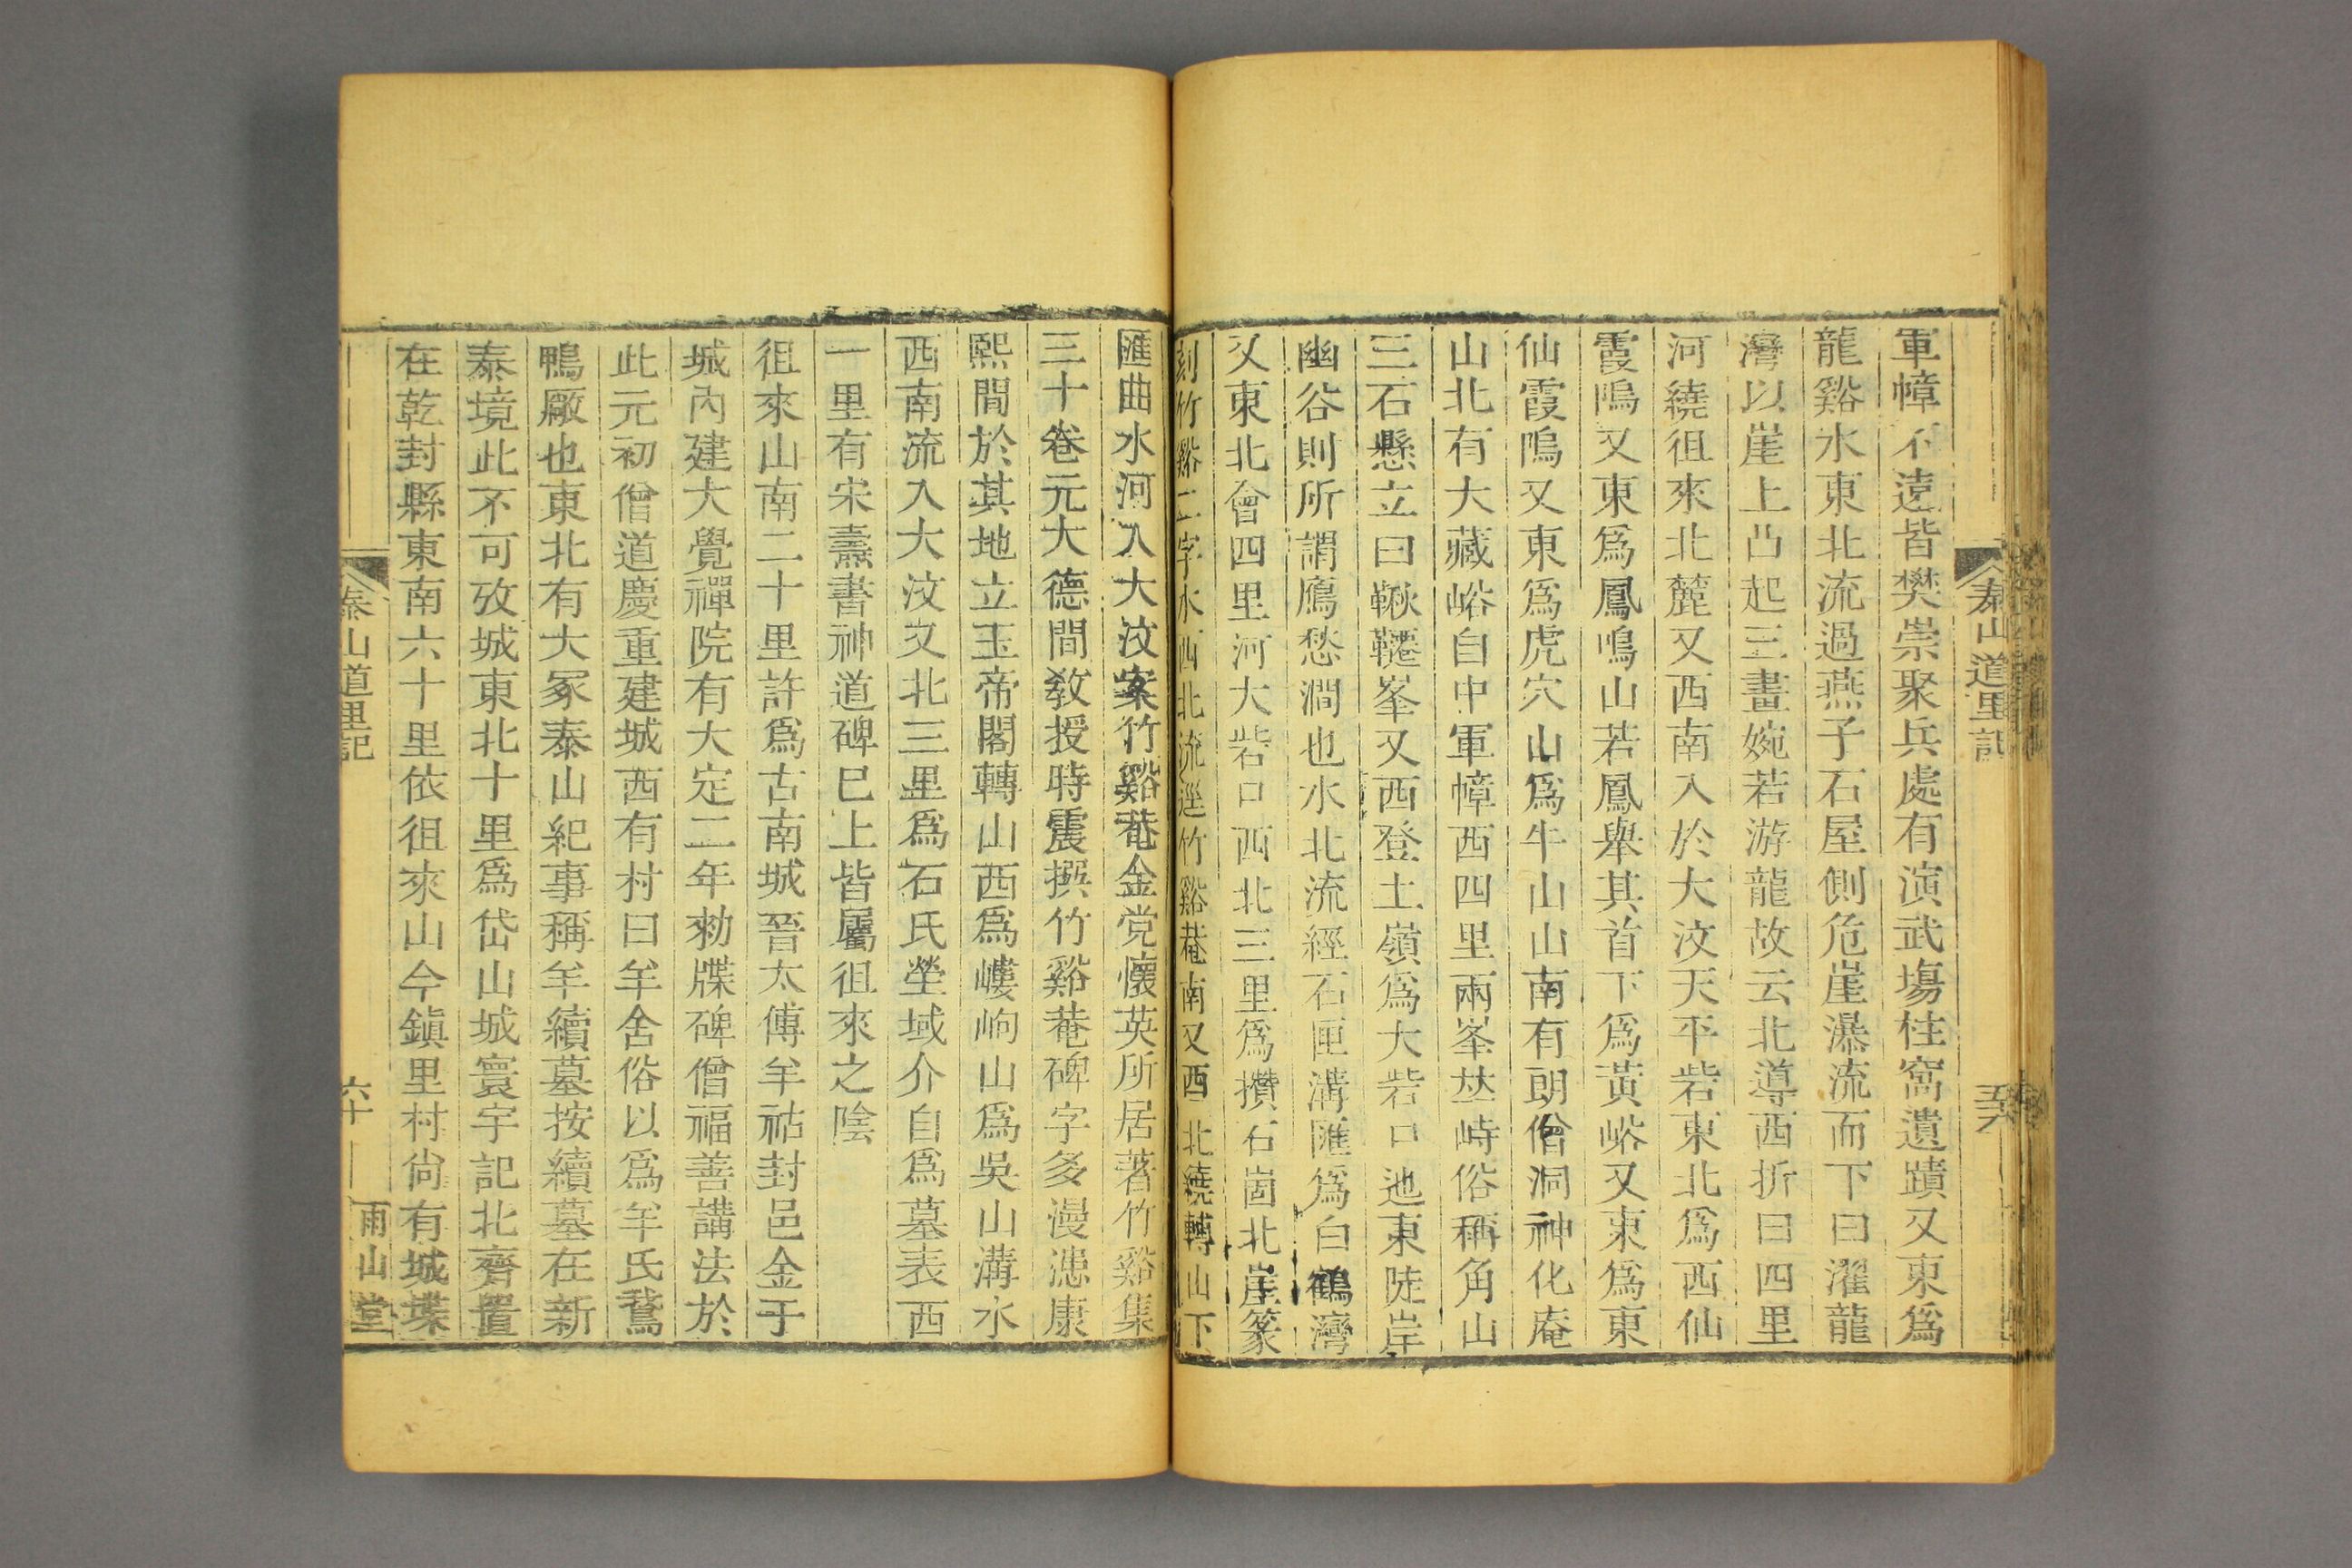 泰山道里記
軍幛不遠皆樊崇聚兵處有演武塲柱窩遺蹟又東爲
龍谿水東北流過燕子石屋側危崖瀑流而下曰濯龍
灣以崖上凸起三畫婉若游龍故云北導西折曰四里
河繞徂來北麓又西南入於大汶天平砦東北爲西仙
霞隖又東爲鳳鳴山若鳳舉其首下爲黃峪又東爲東
仙霞隖又東爲虎穴山爲牛山山南有朗僧洞神化庵
山北有大藏峪自中軍幛西四里兩峯苁峙俗稱角山
三石懸立曰鞦韆峯又西登土嶺爲大砦口迆東陡岸
幽谷則所謂鷹愁澗也水北流經石匣溝匯爲白鶴灣
又東北會四里河大砦口西北三里爲攢石崮北崖篆
刻竹谿二字水西北流逕竹谿菴南又西北繞轉山下
匯曲水河入大汶案竹谿菴金党懷英所居著竹谿集
三十卷元大德間敎授時震撰竹谿菴碑字多漫漶康
熙間於其地立玉帝閣轉山西爲嶁岣山爲吳山溝水
西南流入大汶又北三里爲石氏塋域介自爲墓表西
一里有宋燾書神道碑巳上皆屬徂來之陰
徂來山南二十里許爲古南城晉太傅羊祜封邑金于
城內建大覺禪院有大定二年勑牒碑僧福善講法於
此元初僧道慶重建城西有村曰羊舍俗以爲羊氏鵞
鴨厰也東北有大冢泰山紀事稱羊續墓按續墓在新
泰境此不可攷城東北十里爲岱山城寰宇記北齊置
在乾封縣東南六十里依徂來山今鎭里村尙有城堞
泰山道里記
六十
雨山堂